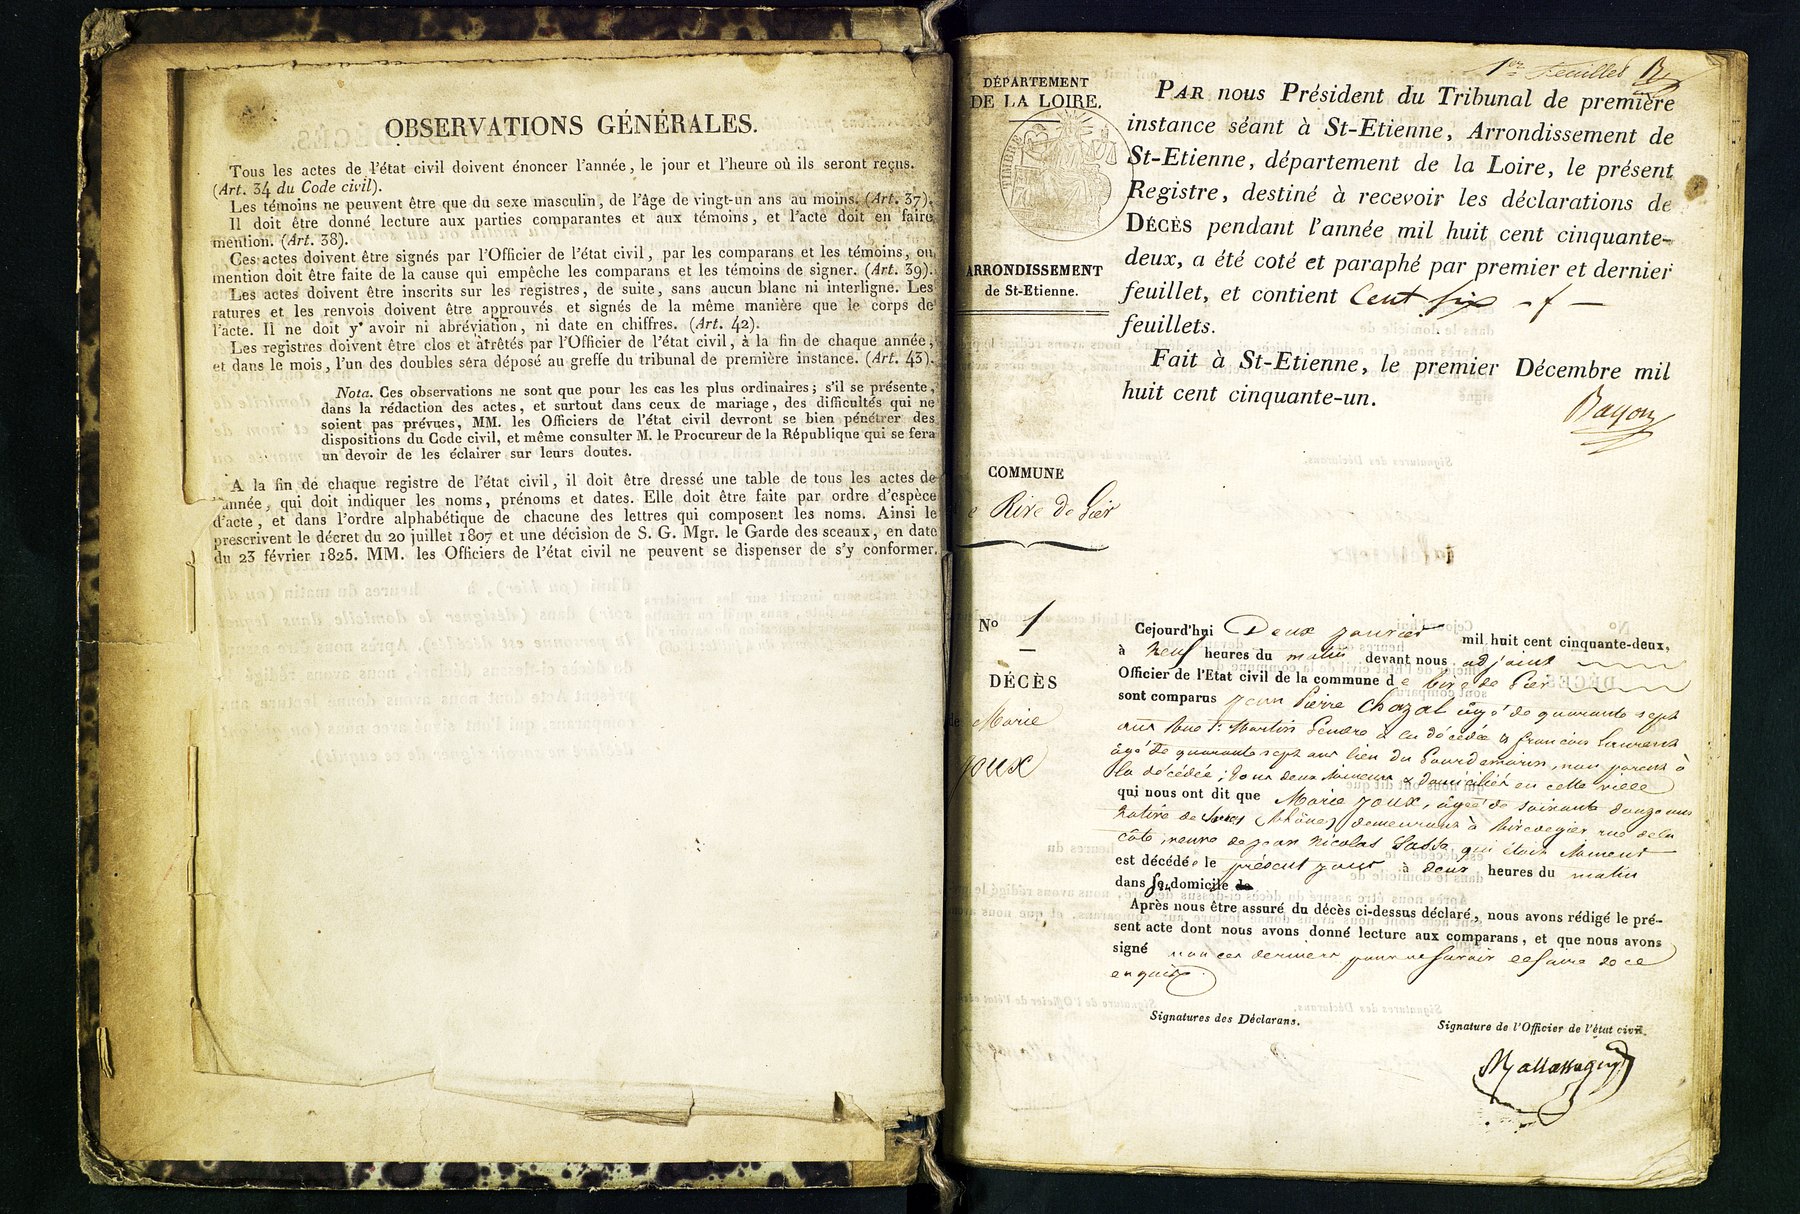 OBSERVATIONS GÉNÉRALES.
Tous les actes de l'état civil doivent énoncer l'année, le jour et l'heure où ils seront reçus.
(Art. 34 du Code civil).
Les témoins ne peuvent être que du sexe masculin, de l'âge de vingt-un ans au moins. (Art. 37).
Il doit être donné lecture aux parties comparantes et aux témoins, et l'acte doit en faire
mention. (Art. 38).
Ces actes doivent être signés par l'Officier de l'état civil, par les comparans et les témoins, ou
mention doit être faite de la cause qui empêche les comparans et les témoins de signer. (Art. 39).
Les actes doivent être inscrits sur les registres, de suite, sans aucun blanc ni interligne. Les
ratures et les renvois doivent être approuvés et signés de la même manière que le corps de
l'acte. Il ne doit y avoir ni abréviation, ni date en chiffres. (Art. 42).
Les registres doivent être clos et arrêtés par l'Officier de l'état civil, à la fin de chaque année;
et dans le mois, l'un des doubles sera déposé au greffe du tribunal de première instance. (Art. 43).
Nota. Ces observations ne sont que pour les cas les plus ordinaires; s'il se présente,
dans la rédaction des actes, et surtout dans ceux de mariage, des difficultés qui ne
soient pas prévues, MM. les Officiers de l'état civil devront se bien pénétrer des
dispositions du Code civil, et même consulter M. le Procureur de la République qui se fera
un devoir de les éclairer sur leurs doutes.
A la fin de chaque registre de l'état civil, il doit être dressé une table de tous les actes de
l'année, qui doit indiquer les noms, prénoms et dates. Elle doit être faite par ordre d'espèce
d'acte, et dans l'ordre alphabétique de chacune des lettres qui composent les noms. Ainsi le
prescrivent le décret du 20 juillet 1807 et une décision de S. G. Mgr. le Garde des sceaux, en date
du 23 février 1825. MM. les Officiers de l'état civil ne peuvent se dispenser de s'y conformer.
1er Feuillet
DÉPARTEMENT
DE LA LOIRE.
TIMBRE
ARRONDISSEMENT
de St-Etienne.
PAR nous Président du Tribunal de première
instance séant à St-Etienne, Arrondissement de
St-Etienne, département de la Loire, le présent
Registre, destiné à recevoir les déclarations de
DÉCÈS pendant l'année mil huit cent cinquante-
deux, a été coté et paraphé par premier et dernier
feuillet, et contient Cent six
feuillets.
Fait à St-Etienne, le premier Décembre mil
huit cent cinquante-un.
Bayon
COMMUNE
e Rive de Gier
No 1
DÉCÈS
de Marie
joux
Cejourd'hui Deux janvier mil huit cent cinquante-deux,
à neuf heures du matin devant nous adjoint
Officier de l'Etat civil de la commune de Rive de Gier
sont comparus jean Pierre Chazal âgé de quarante sept
ans Rue St Martin Gendre à la décédée & françois Laurent
âgé de quarante sept ans lieu du Gourdemarin, non parent à
la décédée; tous deux mineurs & domiciliés en cette ville
qui nous ont dit que Marie joux, âgée de soixante douze ans
native de (Rhône) demeurant à Rivedegier rue de la
côte, veuve de jean Nicolas qui était
est décédée le présent jour à deux heures du matin
dans son domicile de
Après nous être assuré du décès ci-dessus déclaré, nous avons rédigé le pré-
sent acte dont nous avons donné lecture aux comparans, et que nous avons
signé non ces derniers pour ne savoir le faire de ce
enquis
Signatures des Déclarans.
Signature de l'Officier de l'état civil.